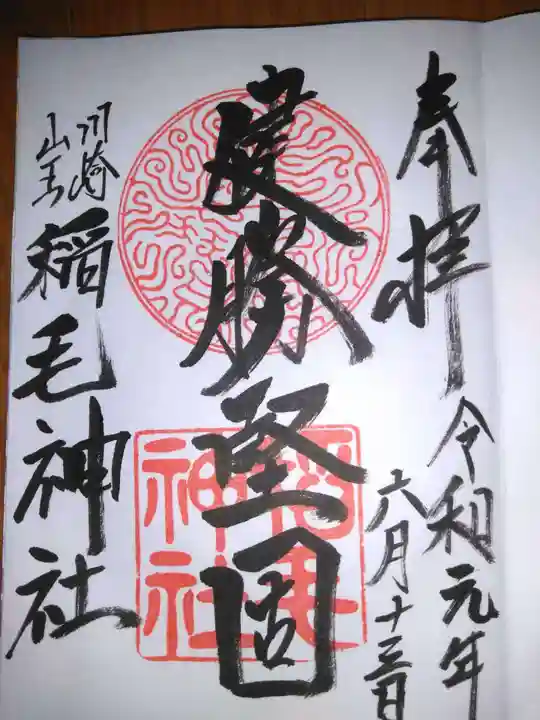 奉拝
令和元年
六月十三日
建勝堅固
川崎
山王
稲毛神社
稲毛
神社